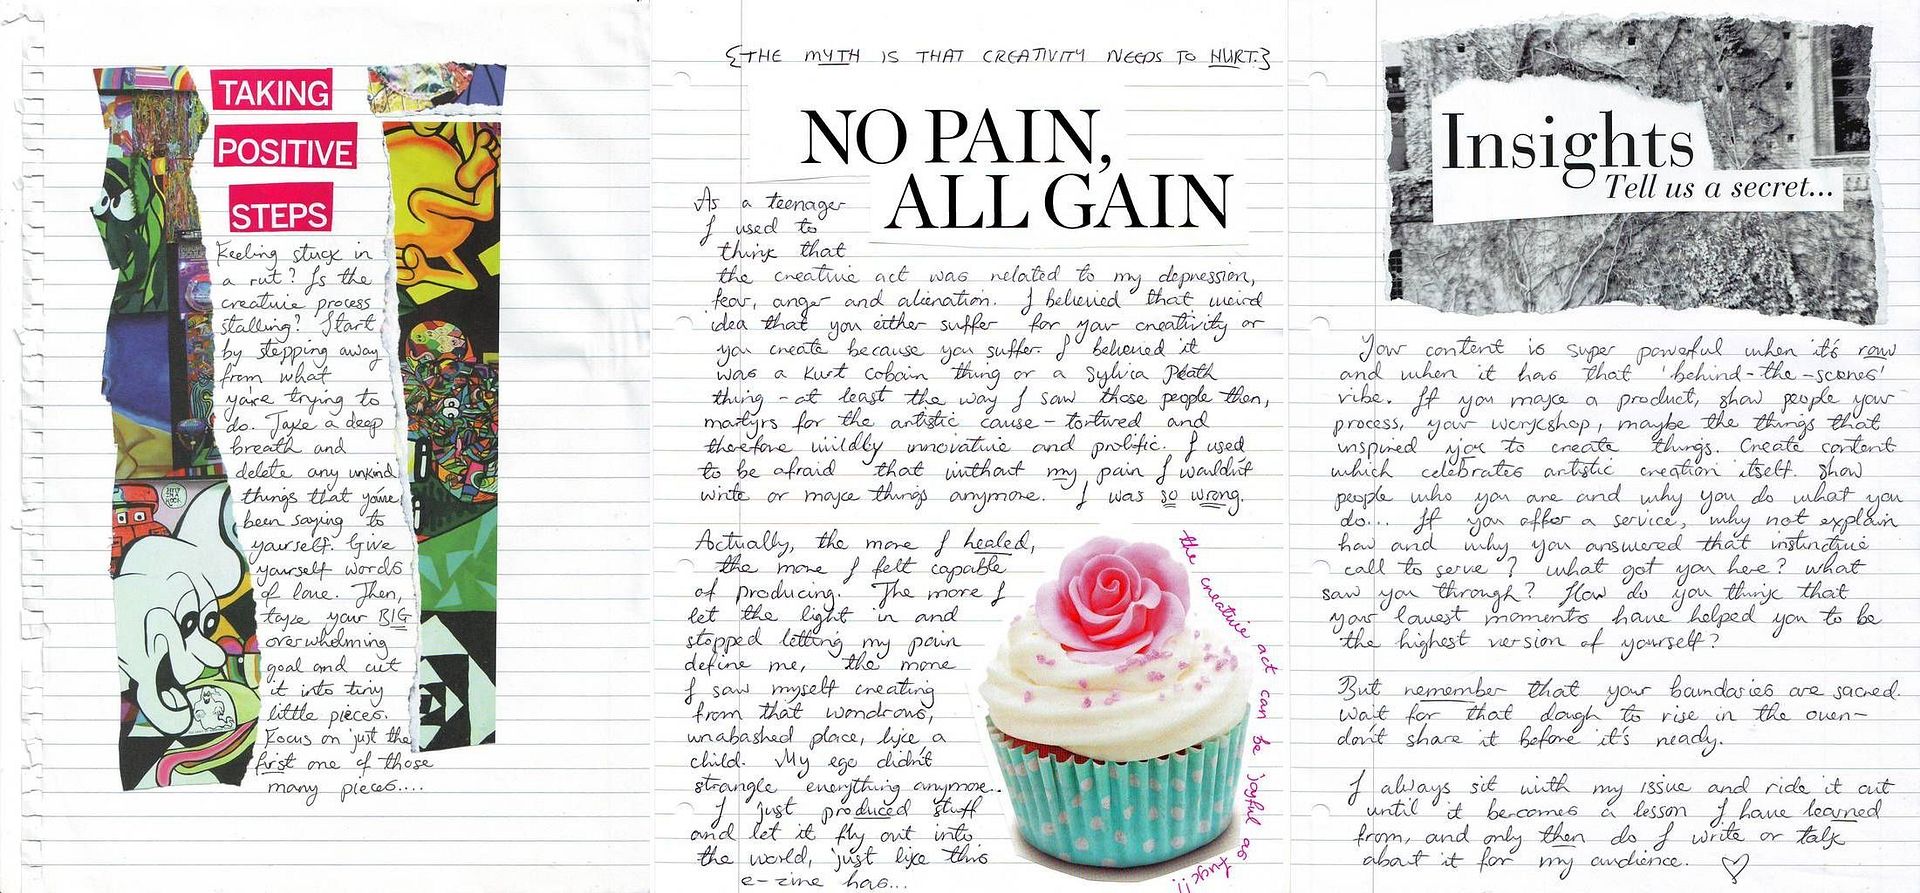 TAKING
POSITIVE
STEPS
Feeling stuck in
a rut? Is the
creative process
stalling? Start
by stepping away
from what
you're trying to
do. Take a deep
breath and
delete any unkind
things that you've
been saying to
yourself. Give
yourself words
of love. Then,
take your BIG
overwhelming
goal and cut
it into tiny
little pieces.
Focus on just the
first one of those
many pieces....
{THE MYTH IS THAT CREATIVITY NEEDS TO HURT.}
NO PAIN,
ALL GAIN
As a teenager
I used to
think that
the creative act was related to my depression,
fear, anger and alienation. I believed that weird
idea that you either suffer for your creativity or
you create because you suffer. I believed it
was a Kurt Cobain thing or a Sylvia Plath
thing - at least the way I saw those people then,
martyrs for the artistic cause - tortured and
therefore wildly innovative and prolific. I used
to be afraid that without my pain I wouldn't
write or make things anymore. I was so wrong.
Actually, the more I healed,
the more I felt capable
of producing. The more I
let the light in and
stopped letting my pain
define me, the more
I saw myself creating
from that wondrous,
unabashed place, like a
child. My ego didn't
strangle everything anymore..
I just produced stuff
and let it fly out into
the world, just like this
e-zine has...
the creative act can be joyful as fuck!!
Insights
Tell us a secret...
Your content is super powerful when it's raw
and when it has that 'behind-the-scenes'
vibe. If you make a product, show people your
process, your workshop, maybe the things that
inspired you to create things. Create content
which celebrates artistic creation itself. Show
people who you are and why you do what you
do... If you offer a service, why not explain
how and why you answered that instinctive
call to serve? What got you here? What
saw you through? How do you think that
your lowest moments have helped you to be
the highest version of yourself?
But remember that your boundaries are sacred.
Wait for that dough to rise in the oven-
don't share it before it's ready.
I always sit with my issue and ride it out
until it becomes a lesson I have learned
from, and only then do I write or talk
about it for my audience. ♡